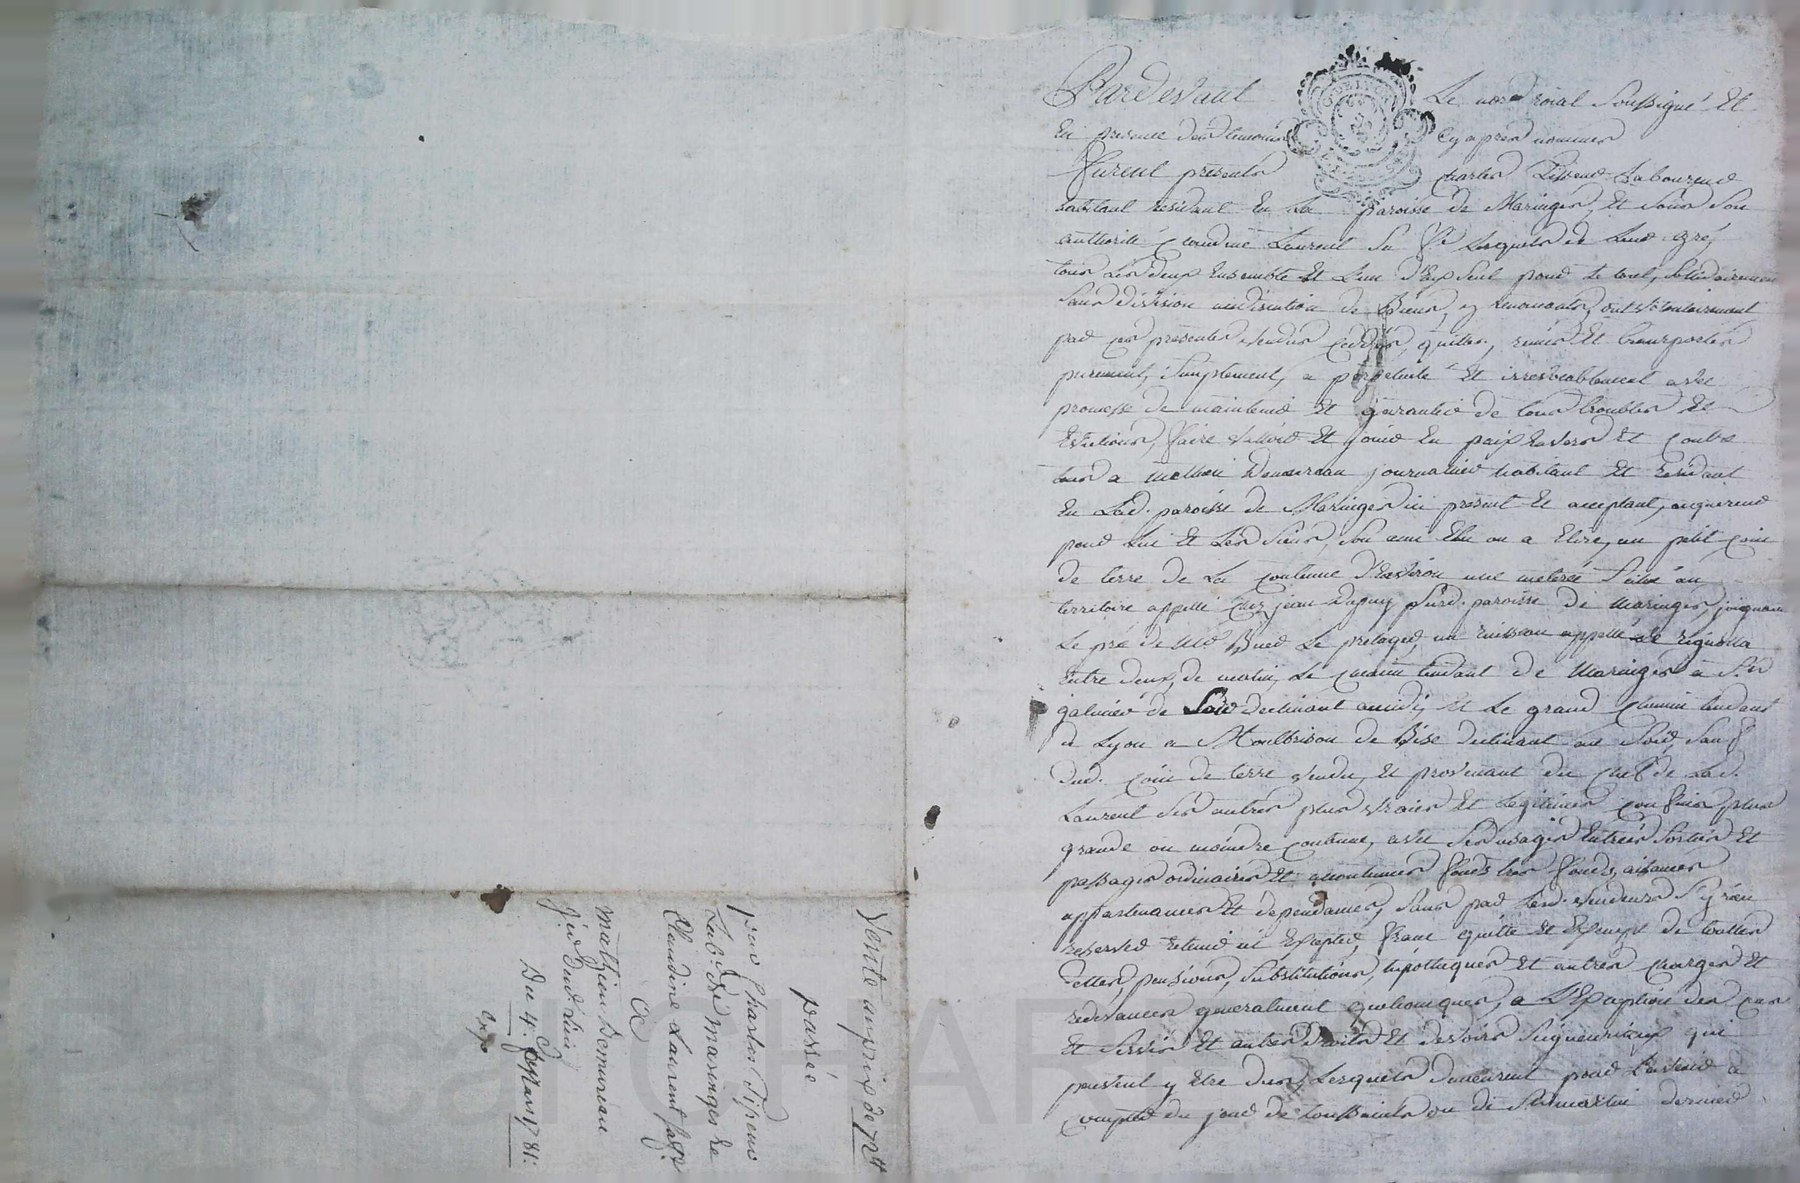 Pardevant Le not. roial soussigné Et
En presence des temoins Cy apres nommes
Furent presents Charles Laboureur
habitant residant En La paroisse de Maringes, Et sous son
authorité Claudine Laurent sa fe. Lesquels de Leur gré,
tous Les deux Ensemble Et L'un d'Eux seul pour le tout, solidairement
sans division de biens, y renoncants, ont volontairement
par ces presentes vendus cedés, quittes, remis Et transportés
purement, simplement, a perpetuité Et irrevocablement avec
promesse de maintenir Et garantir de tous troubles Et
Evictions, faire valloir Et jouir En paix Envers Et Contre
tous a mathieu Demureau journalier habitant Et residant
En Lad. paroisse de Maringes ici present Et acceptant, acquereur
pour Lui Et Les siens, son ami Elu ou a Elire, un petit Coin
de terre de La Contenue d'Environ une meterée situé au
territoire appellé Chez jean Dupuy susd. paroisse de Maringes, joignant
Le pré de Mr. un ruisseau appellé de
Entre deux, de matin, Le chemin tendant de Maringes a St.
galmier de Soir declinant amidi, Et Le grand Chemin tendant
de Lyon a Montbrison de Bise declinant au Soir, Sauf
dud. Coin de terre vendu, Et provenant du Chef de Lad.
Laurent ses autres plus vraies Et Legitimes Confins, plus
grande ou moindre Contenue, avec ses usages Entrées sorties Et
passages ordinaires Et accoutumés fonds tres fonds, aisances
appartenances Et dependances, sans par Lesd. vendeurs s'y rien
reserver retenir ni Excepter, franc quitte Et Exempt de touttes
dettes, pensions, substitutions, hipotheques Et autres Charges Et
redevances generalment quelconques, a L'Exception des Cens
Et Servis Et autres Droits Et devoirs Seigneuriaux qui
peuvent y Etre dus, Lesquels demeurent pour L'avenir a
Compter du jour de toussaints ou de St. martin dernier
Vente au prix de 72 tt
passée
par Charles
Lab. de Maringes Et
Claudine Laurent sa fe.
A
Mathieu Demureau
jer. dud. Lieu
Du 4e. mars 1781.
Exp
Pascal CHAR